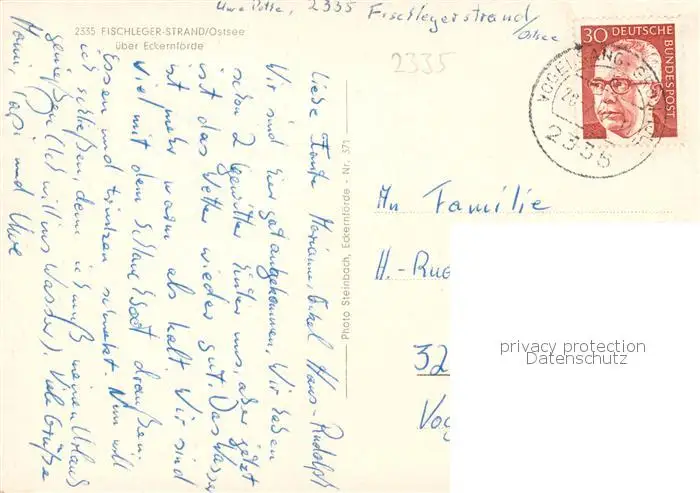 Uwe 2335 Fischlegerstrand/
Ostsee
2335 FISCHLEGER-STRAND/Ostsee
über Eckernförde
2335
30 DEUTSCHE
BUNDESPOST
VOGELSANG-GRÜNHOLZ
2335
Liebe Tante Marianne, Onkel Hans-Rudolph
Wir sind hier gut angekommen. Wir haben
schon 2 Gewitter hinter uns, aber jetzt
ist das Wetter wieder gut. Das Wasser
ist mehr warm als kalt. Wir sind
viel mit dem Schlauchboot draußen.
Essen und trinken schmeckt. Nun will
ich schließen, denn ich muß meinen Urlaub
genießen (Ich will ins Wasser). Viele Grüße
Mami, Papi und Uwe
Photo Steinbach, Eckernförde - Nr. 571
An Familie
H.-Rud
32
Vo
privacy protection
Datenschutz